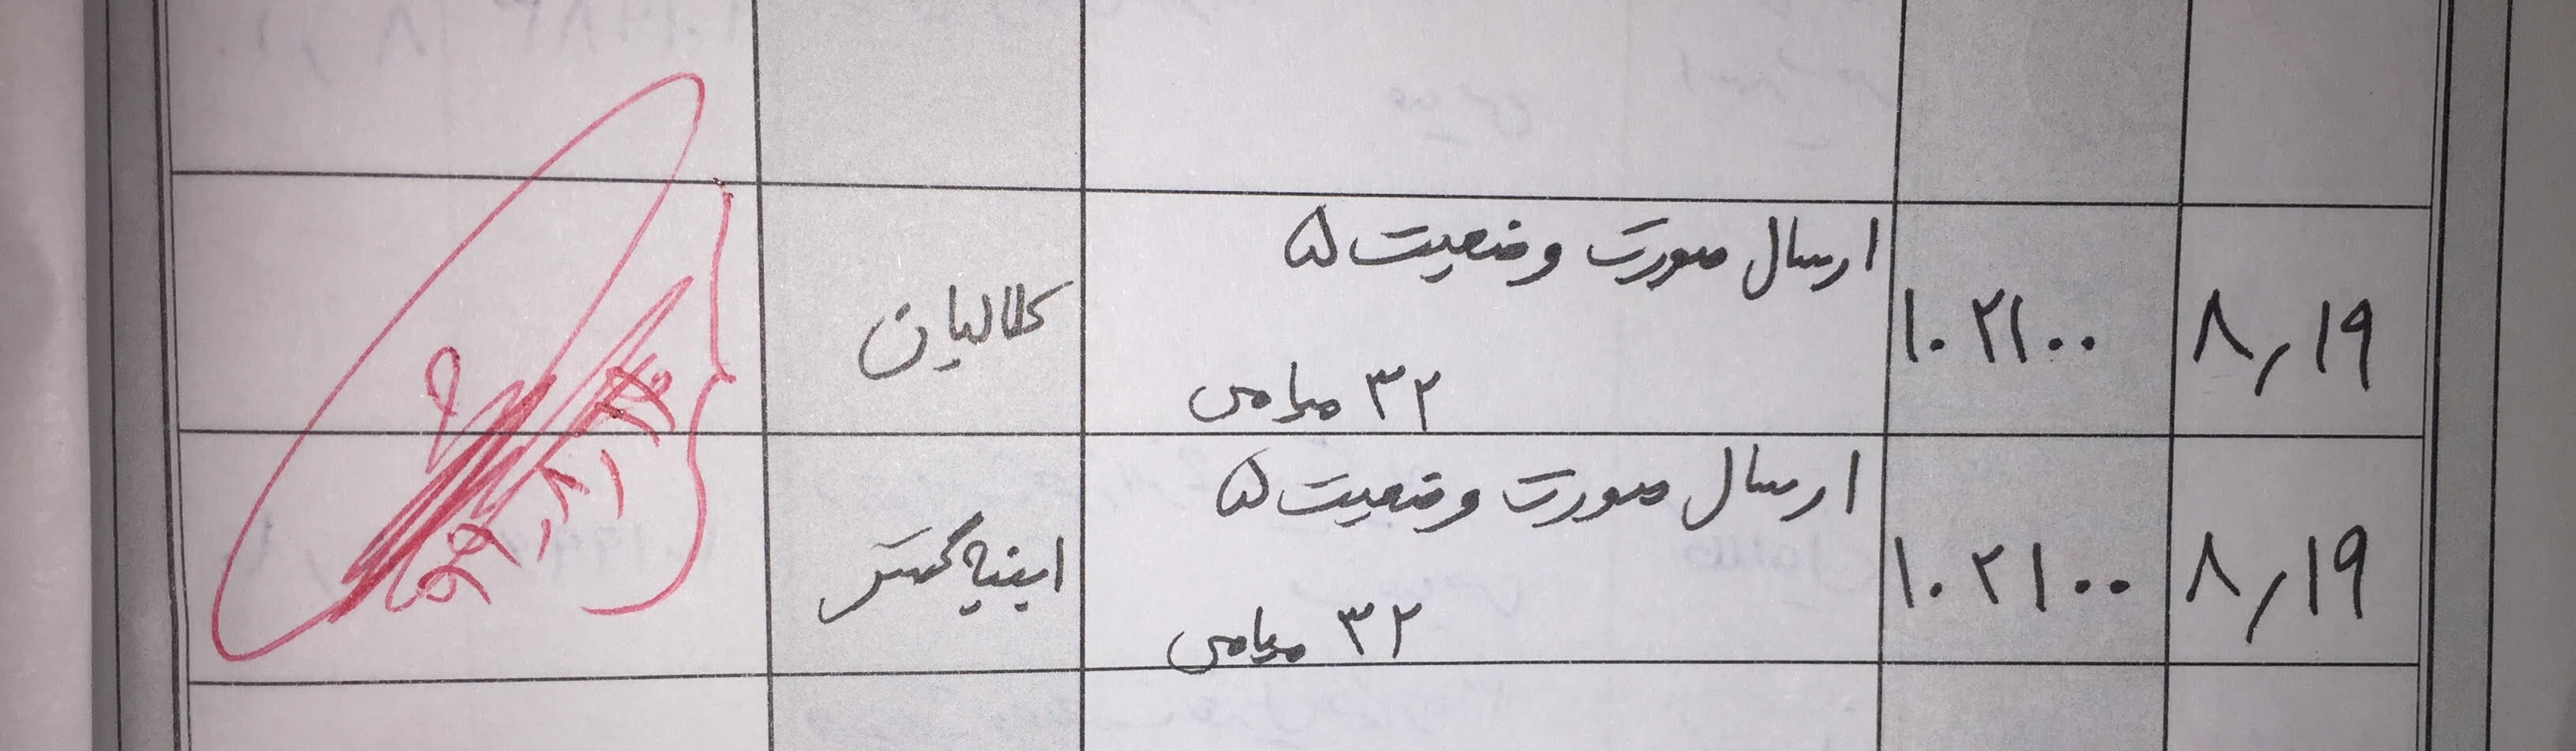 ۸٫۱۹
۱۰۲۱۰۰
ارسال صورت وضعیت ۵
۳۲
طالبیان
۸٫۱۹
۱۰۲۱۰۰
ارسال صورت وضعیت ۵
۳۲
ابنیه گستر